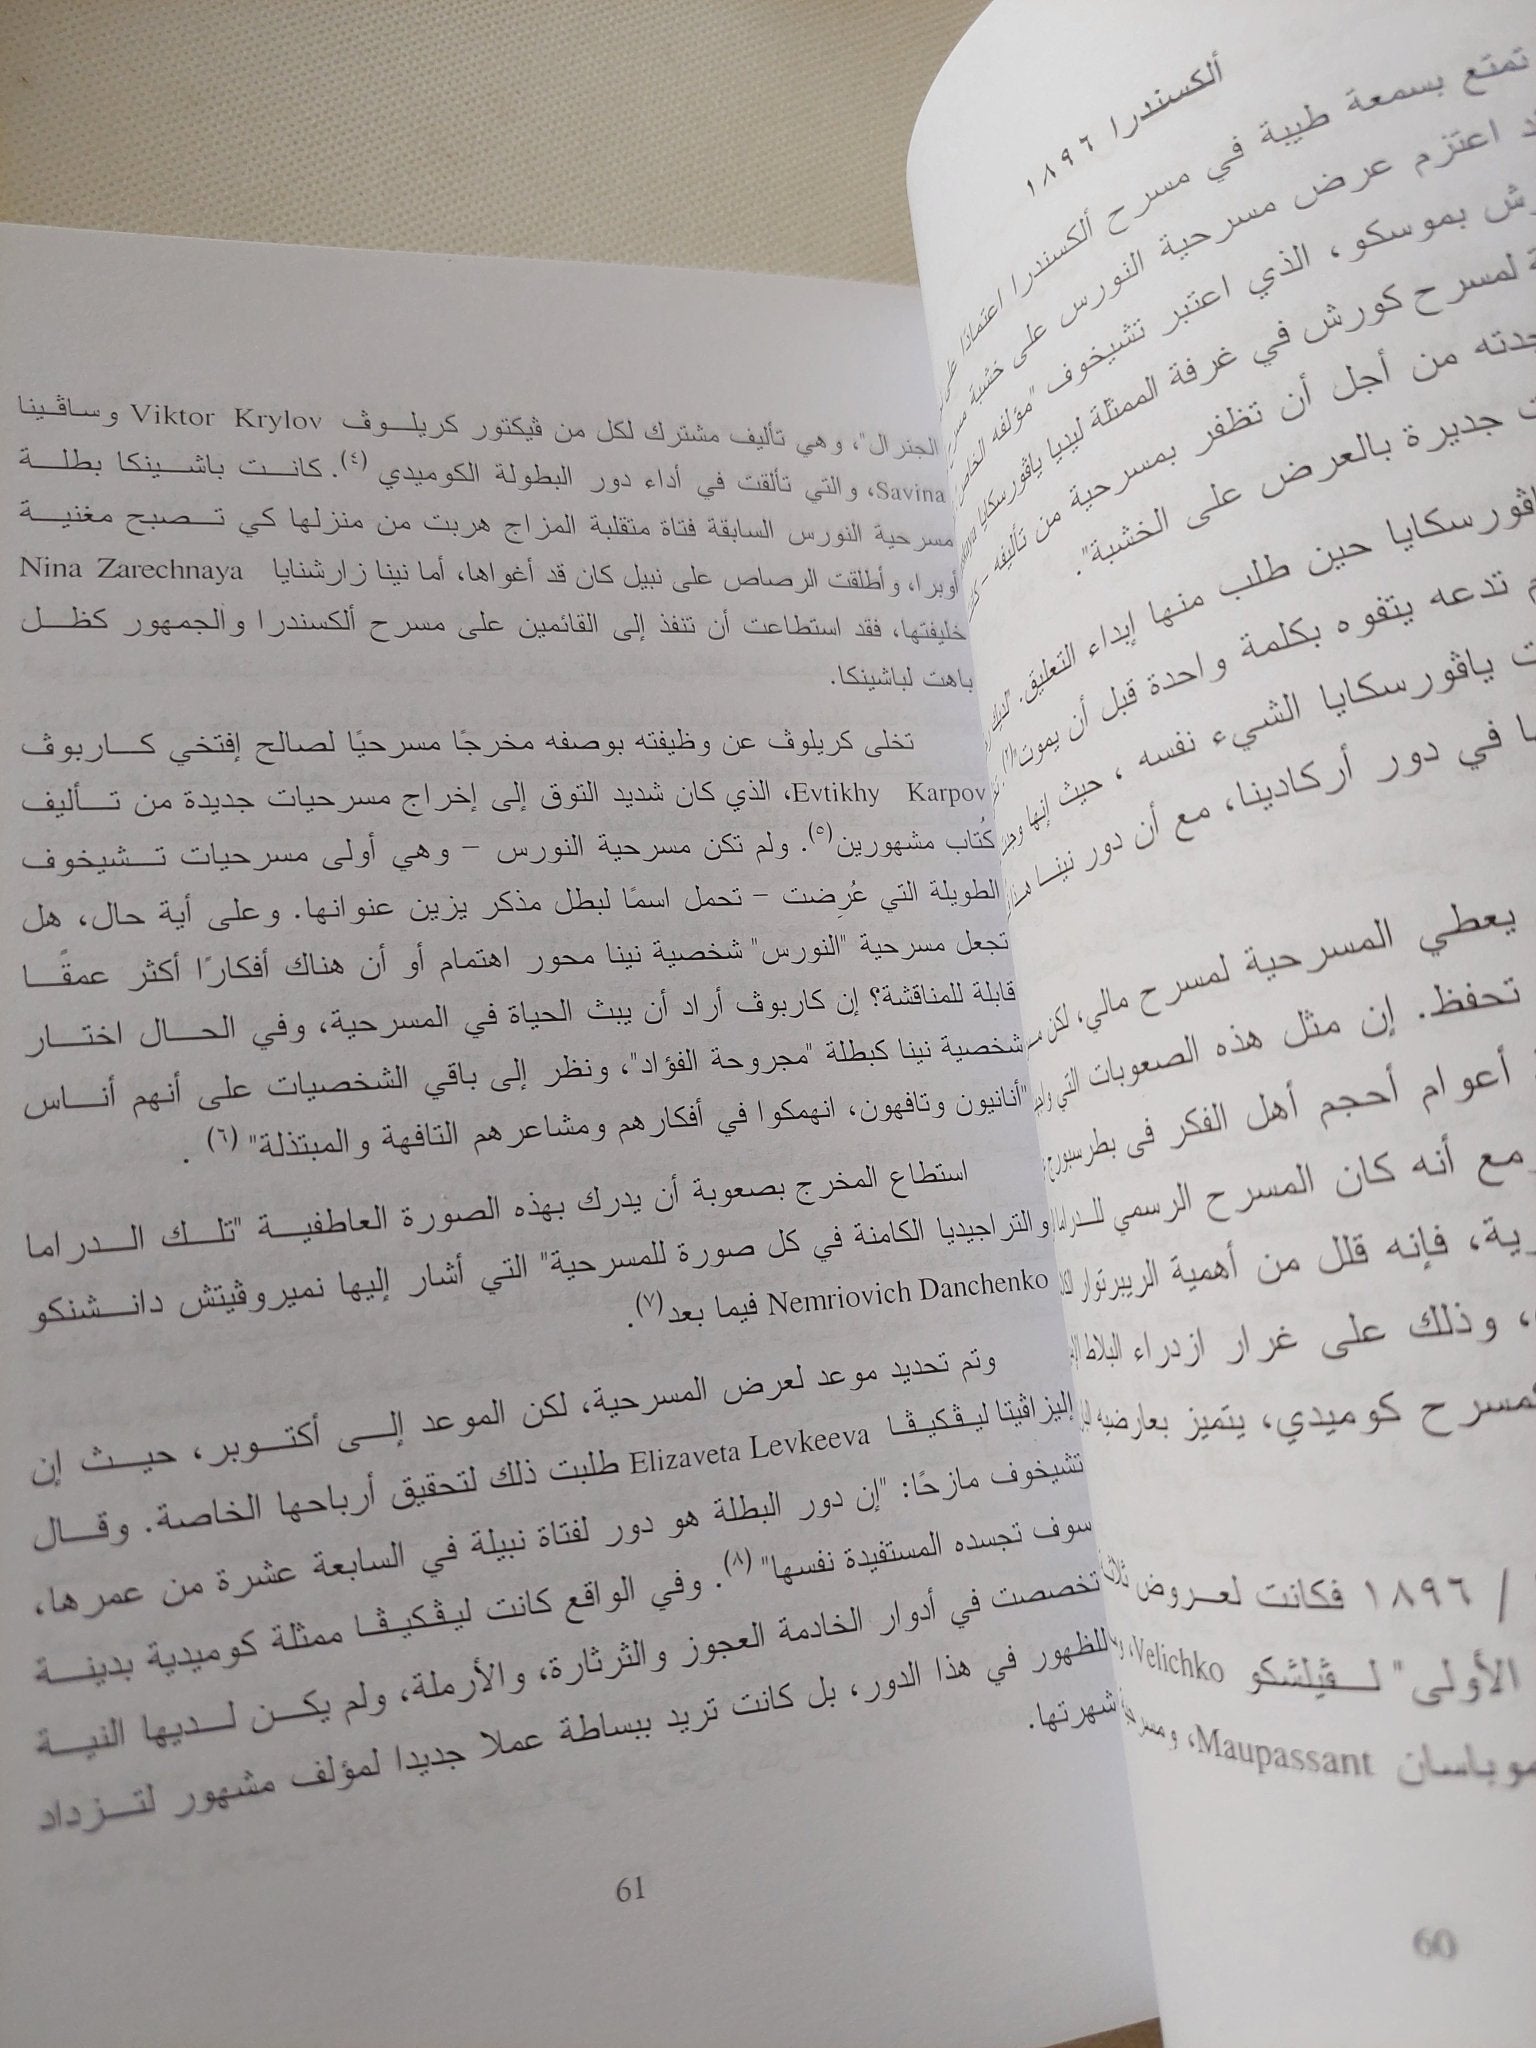 ألكسندرا ١٨٩٦
تمتع بسمعة طيبة في مسرح ألكسندرا اعتمادًا
اعتزم عرض مسرحية النورس على خشبة
بموسكو، الذي اعتبر تشيخوف "مؤلفه الخاص
لمسرح كورش في غرفة الممثلة ليديا ياڤورسكايا
من أجل أن تظفر بمسرحية من تأليفه –
جديرة بالعرض على الخشبة".
ياڤورسكايا حين طلب منها إبداء التعليق. "لديك
تدعه يتفوه بكلمة واحدة قبل أن يموت"(٢).
ياڤورسكايا الشيء نفسه ، حيث إنها
في دور أركادينا، مع أن دور نينا
يعطي المسرحية لمسرح مالي، لكن
تحفظ. إن مثل هذه الصعوبات التي
أعوام أحجم أهل الفكر فى بطرسبورج
ومع أنه كان المسرح الرسمي للدراما
فإنه قلل من أهمية الريبرتوار
، وذلك على غرار ازدراء البلاط
كمسرح كوميدي، يتميز بعارضيه
/ ١٨٩٦ فكانت لعروض
الأولى" لـڤيلشكو Velichko،
موباسان Maupassant،
60
الجنرال"، وهي تأليف مشترك لكل من ڤيكتور كريلوڤ Viktor Krylov وساڤينا
Savina، والتي تألقت في أداء دور البطولة الكوميدي (٤). كانت باشينكا بطلة
مسرحية النورس السابقة فتاة متقلبة المزاج هربت من منزلها كي تصبح مغنية
أوبرا، وأطلقت الرصاص على نبيل كان قد أغواها، أما نينا زارشنايا Nina Zarechnaya
خليفتها، فقد استطاعت أن تنفذ إلى القائمين على مسرح ألكسندرا والجمهور كظل
باهت لباشينكا.
تخلى كريلوڤ عن وظيفته بوصفه مخرجًا مسرحيًا لصالح إفتخي كاربوڤ
Evtikhy Karpov، الذي كان شديد التوق إلى إخراج مسرحيات جديدة من تأليف
كُتاب مشهورين(٥). ولم تكن مسرحية النورس – وهي أولى مسرحيات تشيخوف
الطويلة التي عُرِضت – تحمل اسمًا لبطل مذكر يزين عنوانها. وعلى أية حال، هل
تجعل مسرحية "النورس" شخصية نينا محور اهتمام أو أن هناك أفكارًا أكثر عمقًا
قابلة للمناقشة؟ إن كاربوڤ أراد أن يبث الحياة في المسرحية، وفي الحال اختار
شخصية نينا كبطلة "مجروحة الفؤاد"، ونظر إلى باقي الشخصيات على أنهم أناس
"أنانيون وتافهون، انهمكوا في أفكارهم ومشاعرهم التافهة والمبتذلة" (٦) .
استطاع المخرج بصعوبة أن يدرك بهذه الصورة العاطفية "تلك الدراما
والتراجيديا الكامنة في كل صورة للمسرحية" التي أشار إليها نميروڤيتش دانشنكو
Nemriovich Danchenko فيما بعد(٧).
وتم تحديد موعد لعرض المسرحية، لكن الموعد إلى أكتوبر، حيث إن
إليزاڤيتا ليڤكيڤا Elizaveta Levkeeva طلبت ذلك لتحقيق أرباحها الخاصة. وقال
تشيخوف مازحًا: "إن دور البطلة هو دور لفتاة نبيلة في السابعة عشرة من عمرها،
سوف تجسده المستفيدة نفسها" (٨). وفي الواقع كانت ليڤكيڤا ممثلة كوميدية بدينة
تخصصت في أدوار الخادمة العجوز والثرثارة، والأرملة، ولم يكن لديها النية
للظهور في هذا الدور، بل كانت تريد ببساطة عملا جديدا لمؤلف مشهور لتزداد
شهرتها.
61